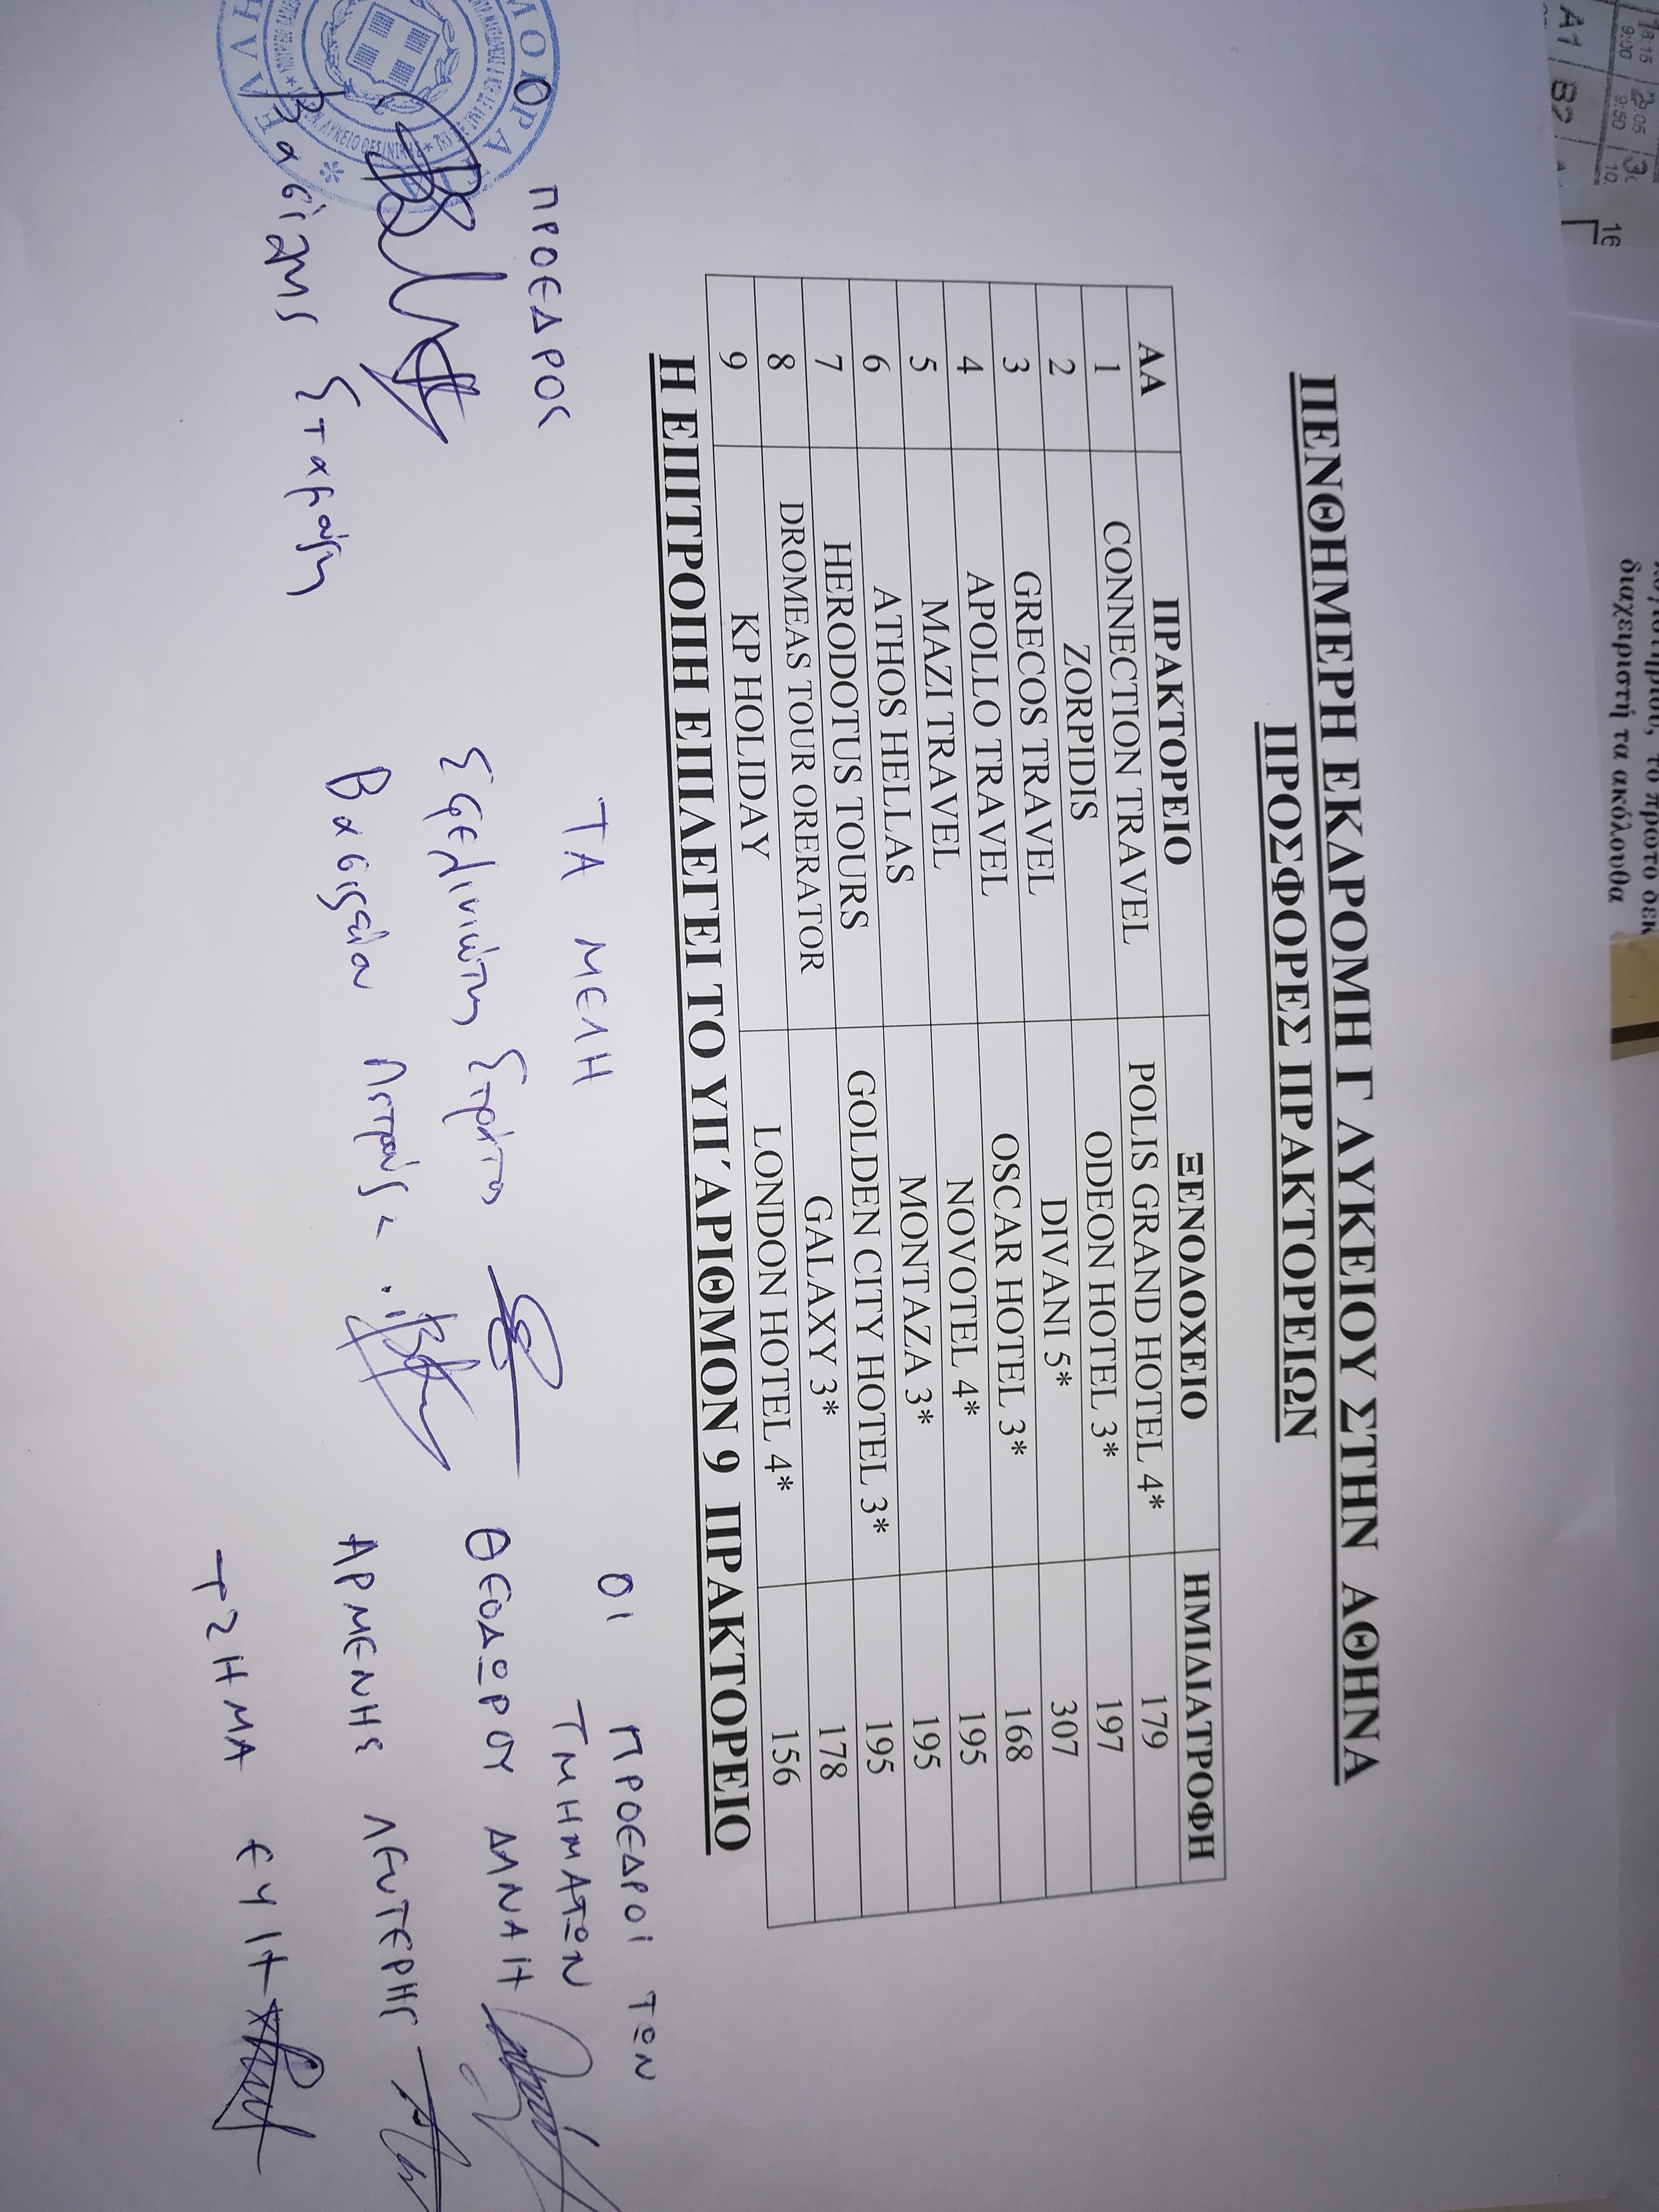 ΠΕΝΘΗΜΕΡΗ ΕΚΔΡΟΜΗ Γ ΛΥΚΕΙΟΥ ΣΤΗΝ ΑΘΗΝΑ
ΠΡΟΣΦΟΡΕΣ ΠΡΑΚΤΟΡΕΙΩΝ
ΑΑ ΠΡΑΚΤΟΡΕΙΟ ΞΕΝΟΔΟΧΕΙΟ ΗΜΙΔΙΑΤΡΟΦΗ
1 CONNECTION TRAVEL POLIS GRAND HOTEL 4* 179
2 ZORPIDIS ODEON HOTEL 3* 197
3 GRECOS TRAVEL DIVANI 5* 307
4 APOLLO TRAVEL OSCAR HOTEL 3* 168
5 MAZI TRAVEL NOVOTEL 4* 195
6 ATHOS HELLAS MONTAZA 3* 195
7 HERODOTUS TOURS GOLDEN CITY HOTEL 3* 195
8 DROMEAS TOUR ORERATOR GALAXY 3* 178
9 KP HOLIDAY LONDON HOTEL 4* 156
Η ΕΠΙΤΡΟΠΗ ΕΠΙΛΕΓΕΙ ΤΟ ΥΠ΄ΑΡΙΘΜΟΝ 9 ΠΡΑΚΤΟΡΕΙΟ
Ο ΠΡΟΕΔΡΟΣ
Βασίλης Σταμάτη
ΤΑ ΜΕΛΗ
Βασιλεία
ΟΙ ΠΡΟΕΔΡΟΙ ΤΩΝ
ΤΜΗΜΑΤΩΝ
ΘΕΟΔΩΡΟΥ ΔΑΝΑΗ
ΑΡΜΕΝΗΣ ΛΕΥΤΕΡΗΣ
ΤΖΗΜΑ ΕΥΗ
διαχειριστή τα ακόλουθα
Α1 Β2